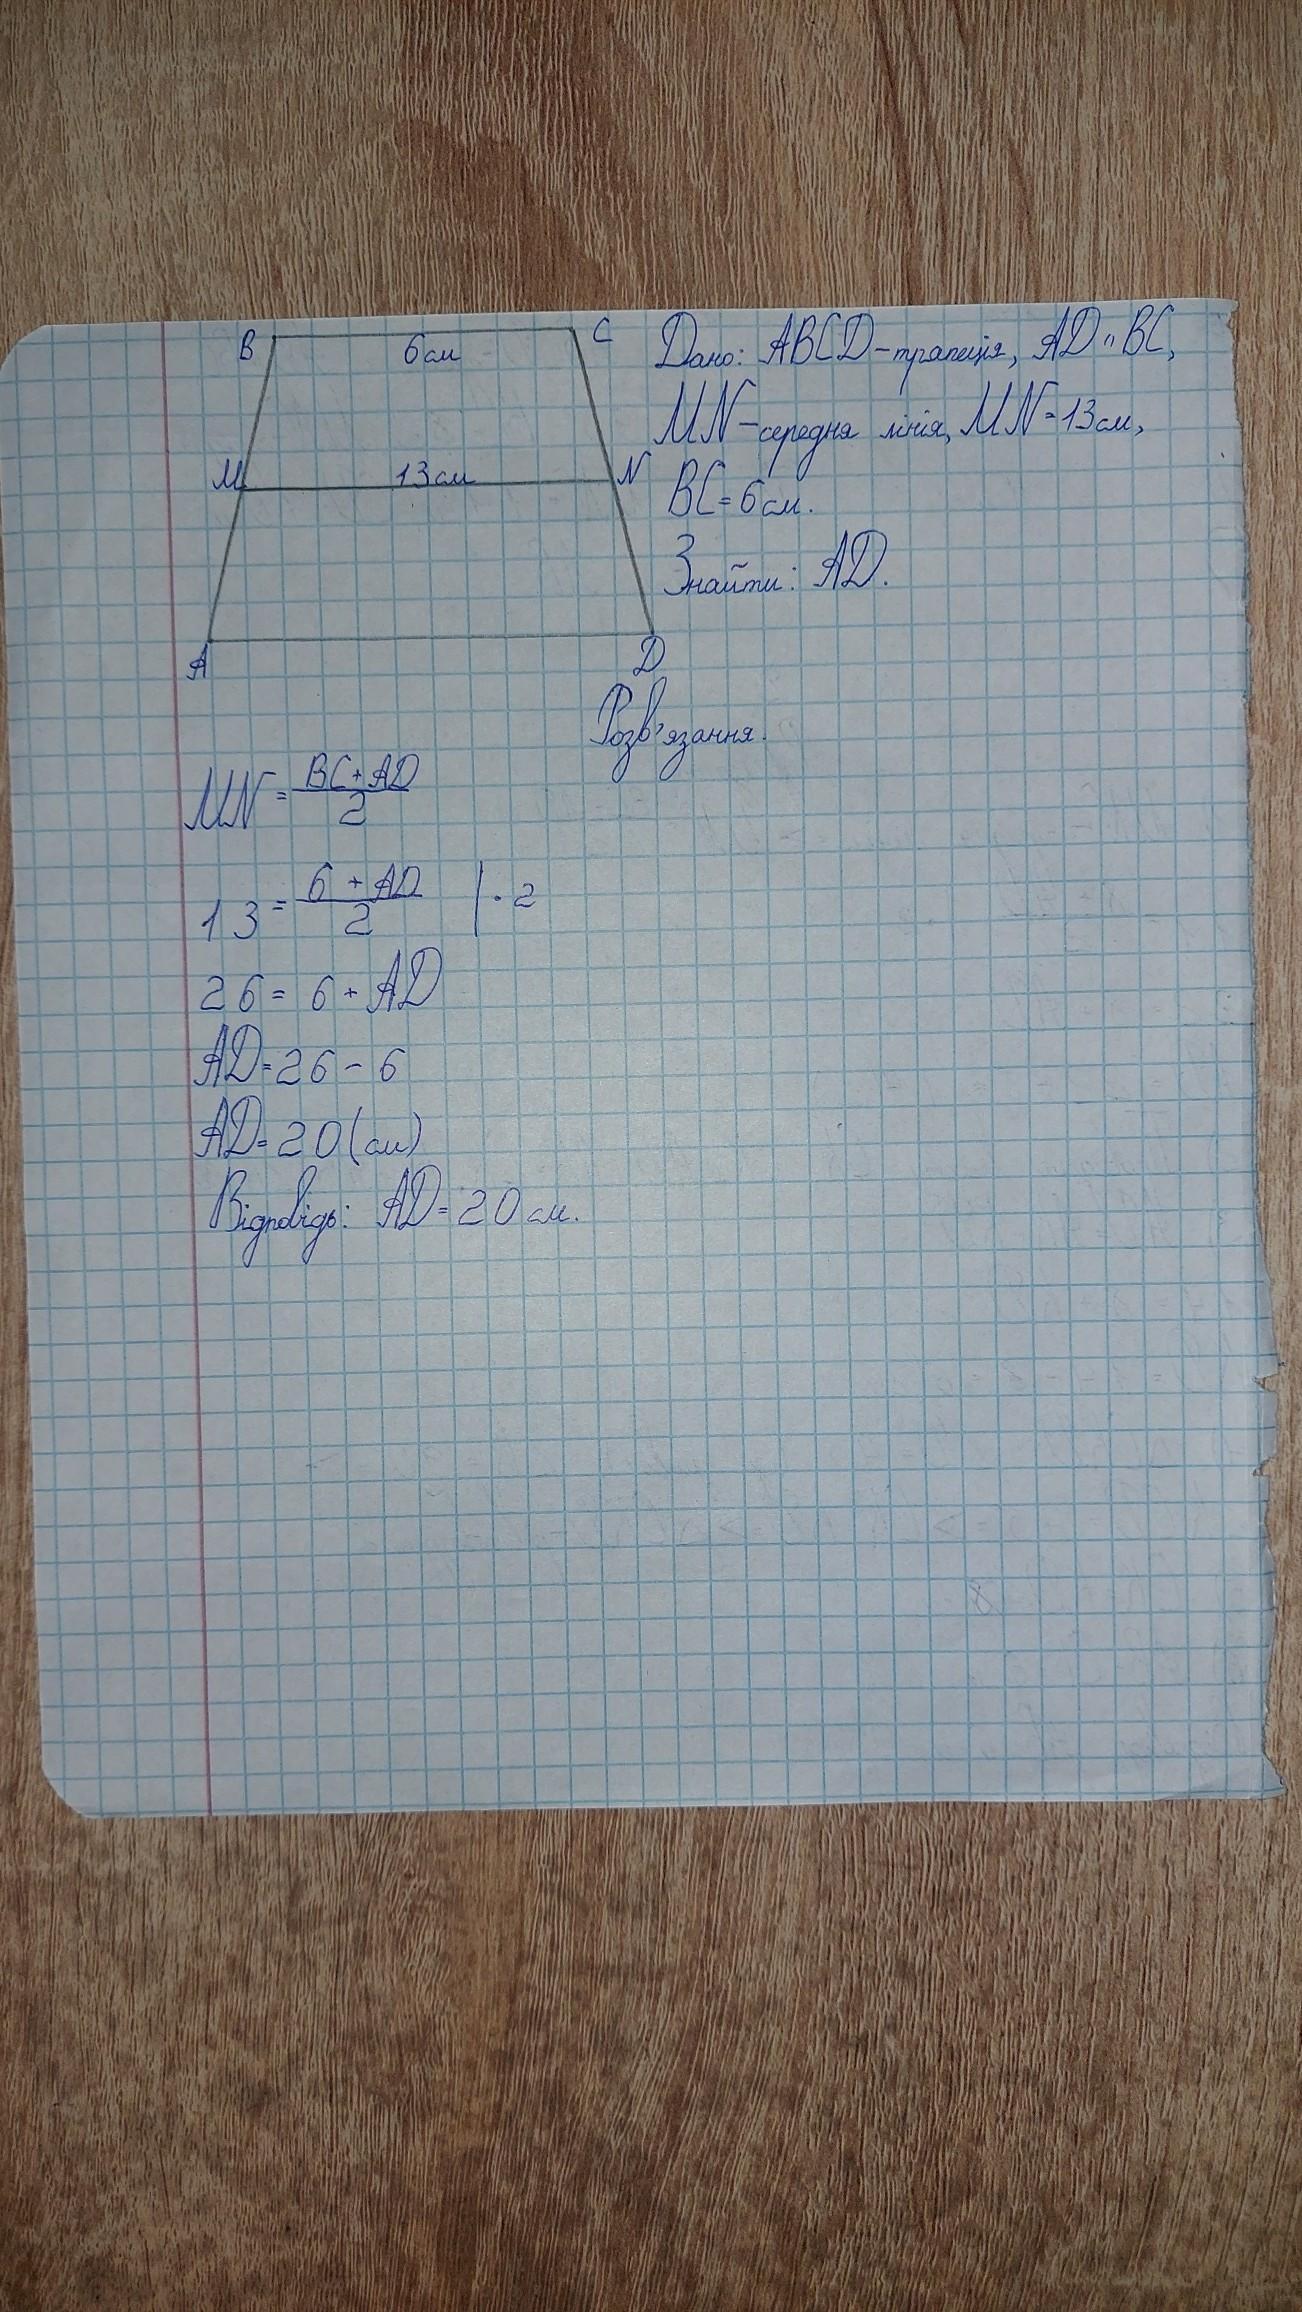 B 6см C
Дано: ABCD-трапеція, AD || BC,
MN-середня лінія, MN=13см,
M 13см N
BC=6см.
Знайти: AD.
A D
Розв'язання.
MN = (BC+AD)/2
13 = (6+AD)/2 |·2
26 = 6 + AD
AD=26-6
AD=20(см)
Відповідь: AD=20см.